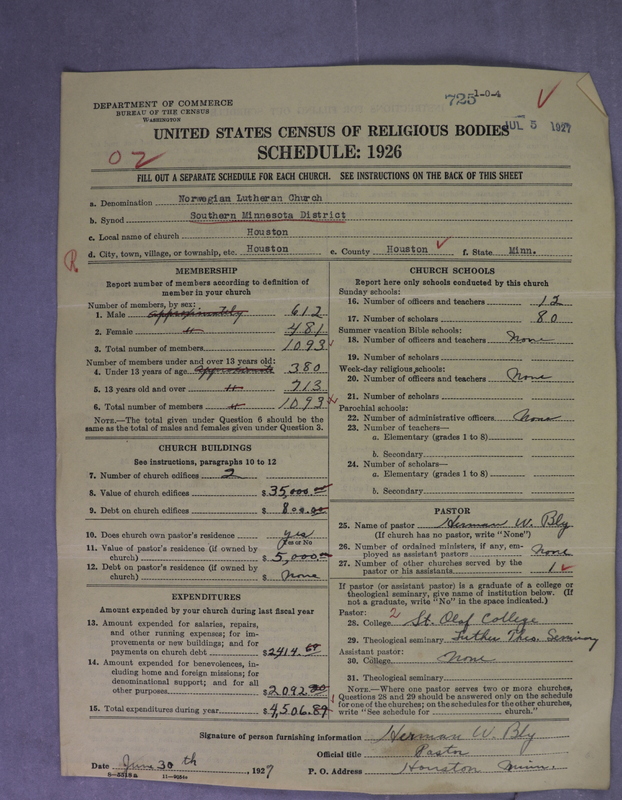 DEPARTMENT OF COMMERCE
BUREAU OF THE CENSUS
WASHINGTON
725 1-0-4
JUL 5 1927
UNITED STATES CENSUS OF RELIGIOUS BODIES
SCHEDULE: 1926
02
FILL OUT A SEPARATE SCHEDULE FOR EACH CHURCH. SEE INSTRUCTIONS ON THE BACK OF THIS SHEET
a. Denomination Norwegian Lutheran Church
b. Synod Southern Minnesota District
c. Local name of church Houston
d. City, town, village, or township, etc. Houston e. County Houston f. State Minn.
R
MEMBERSHIP
Report number of members according to definition of
member in your church
Number of members, by sex:
1. Male approximately 612
2. Female " 481
3. Total number of members 1093
Number of members under and over 13 years old:
4. Under 13 years of age approximate 380
5. 13 years old and over " 713
6. Total number of members " 1093
NOTE.—The total given under Question 6 should be the
same as the total of males and females given under Question 3.
CHURCH BUILDINGS
See instructions, paragraphs 10 to 12
7. Number of church edifices 2
8. Value of church edifices $35,000.00
9. Debt on church edifices $800.00
10. Does church own pastor's residence yes
Yes or No
11. Value of pastor's residence (if owned by
church) $5,000.00
12. Debt on pastor's residence (if owned by
church) $ none
EXPENDITURES
Amount expended by your church during last fiscal year
13. Amount expended for salaries, repairs,
and other running expenses; for im-
provements or new buildings; and for
payments on church debt $2414.
14. Amount expended for benevolences, in-
cluding home and foreign missions; for
denominational support; and for all
other purposes $2092.
15. Total expenditures during year $4,506.89
CHURCH SCHOOLS
Report here only schools conducted by this church
Sunday schools:
16. Number of officers and teachers 12
17. Number of scholars 80
Summer vacation Bible schools:
18. Number of officers and teachers None
19. Number of scholars
Week-day religious schools:
20. Number of officers and teachers None
21. Number of scholars
Parochial schools:
22. Number of administrative officers None
23. Number of teachers—
a. Elementary (grades 1 to 8)
b. Secondary
24. Number of scholars—
a. Elementary (grades 1 to 8)
b. Secondary
PASTOR
25. Name of pastor Herman W. Bly
(If church has no pastor, write "None")
26. Number of ordained ministers, if any, em-
ployed as assistant pastors None
27. Number of other churches served by the
pastor or his assistants 1
If pastor (or assistant pastor) is a graduate of a college or
theological seminary, give name of institution below. (If
not a graduate, write "No" in the space indicated.)
Pastor: 2
28. College St. Olaf College
29. Theological seminary Luther Theo. Seminary
Assistant pastor:
30. College None
31. Theological seminary
NOTE.—Where one pastor serves two or more churches,
Questions 28 and 29 should be answered only on the schedule
for one of the churches; on the schedules for the other churches,
write "See schedule for church."
Signature of person furnishing information Herman W. Bly
Official title Pastor
Date June 30 th, 1927 P. O. Address Houston Minn.
8-5318a